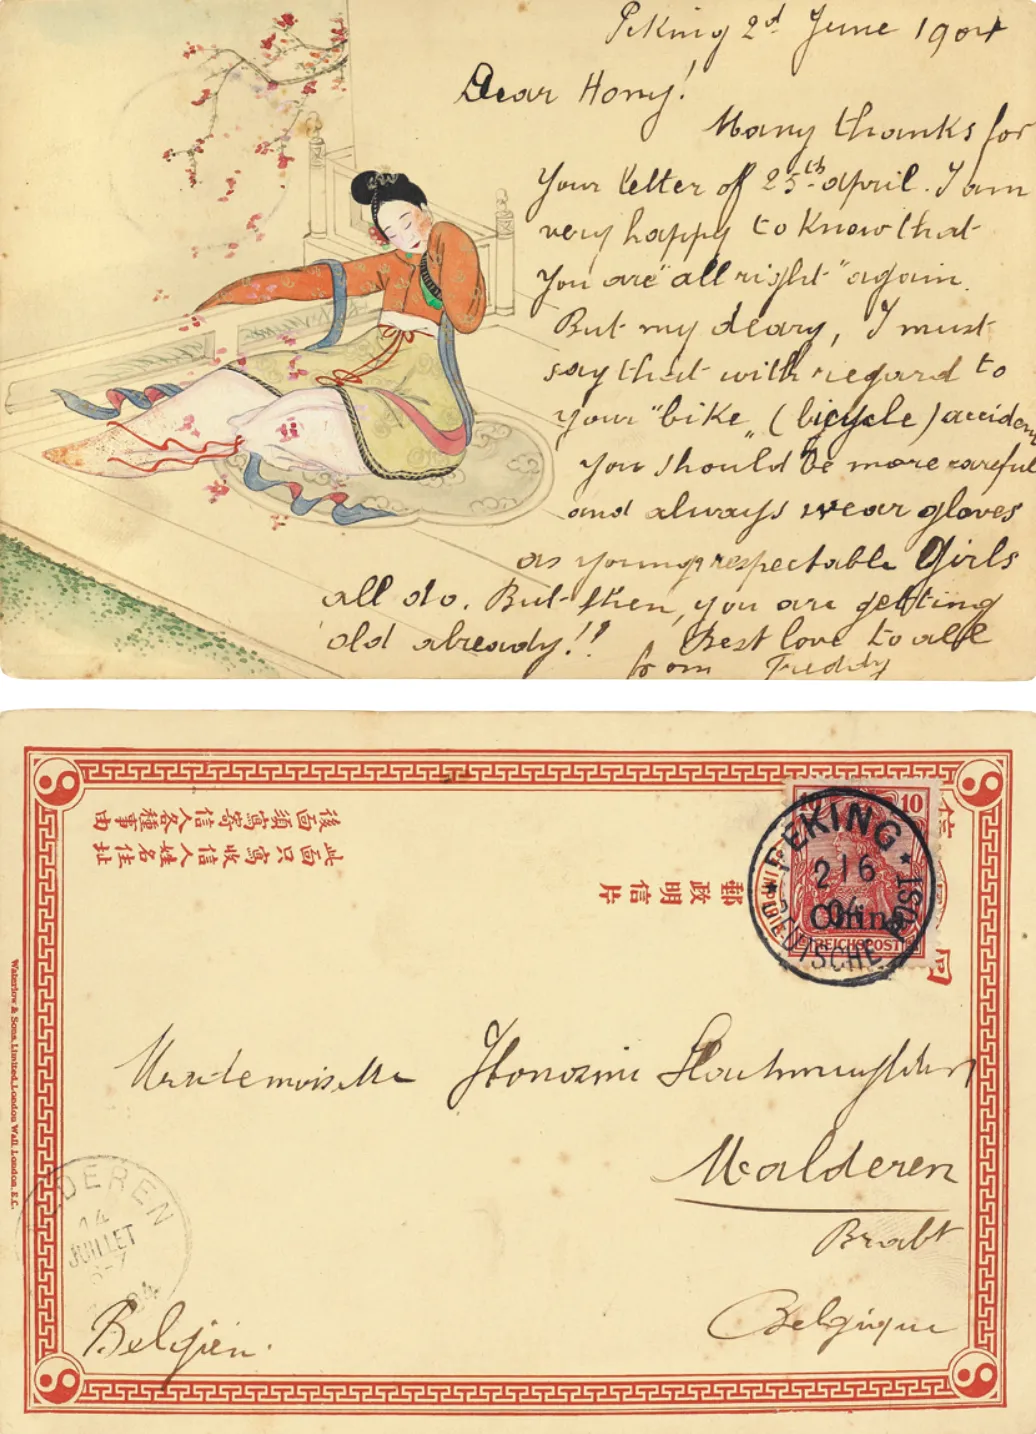 Peking 2d June 1904
Dear Hony!
Many thanks for
your letter of 25th april. I am
very happy to know that
you are "all right" again.
But my deary, I must
say that with regard to
your "bike" (bicycle) acciden
you should be more careful
and always wear gloves
as young respectable Girls
all do. But then, you are getting
old already!!
Best love to all
from Freddy
後面須寫寄信人各種事由
此面只寫收信人姓名住址
郵政明信片
10
10
REICHSPOST
China
PEKING
2 6
04
DEUTSCHE POST
Mademoiselle
Malderen
Brabt
Belgique
Belgien.
DEREN
14
JUILLET
6-7
04
Waterlow & Sons, Limited, London Wall, London, E.C.